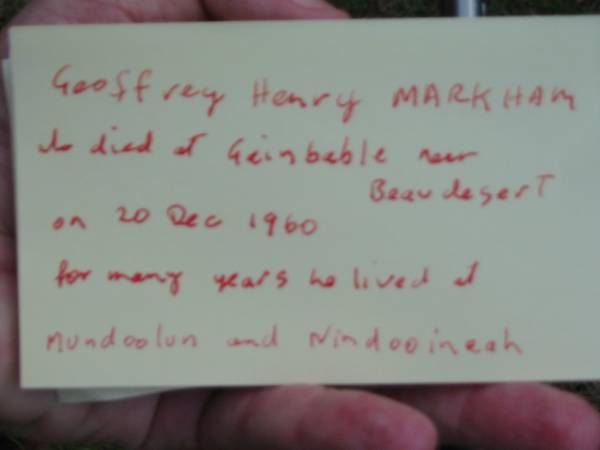 Geoffrey Henry MARKHAM
died at Geinbable near
Beaudesert
on 20 Dec 1960
for many years he lived at
Mundoolun and Nindooinbah